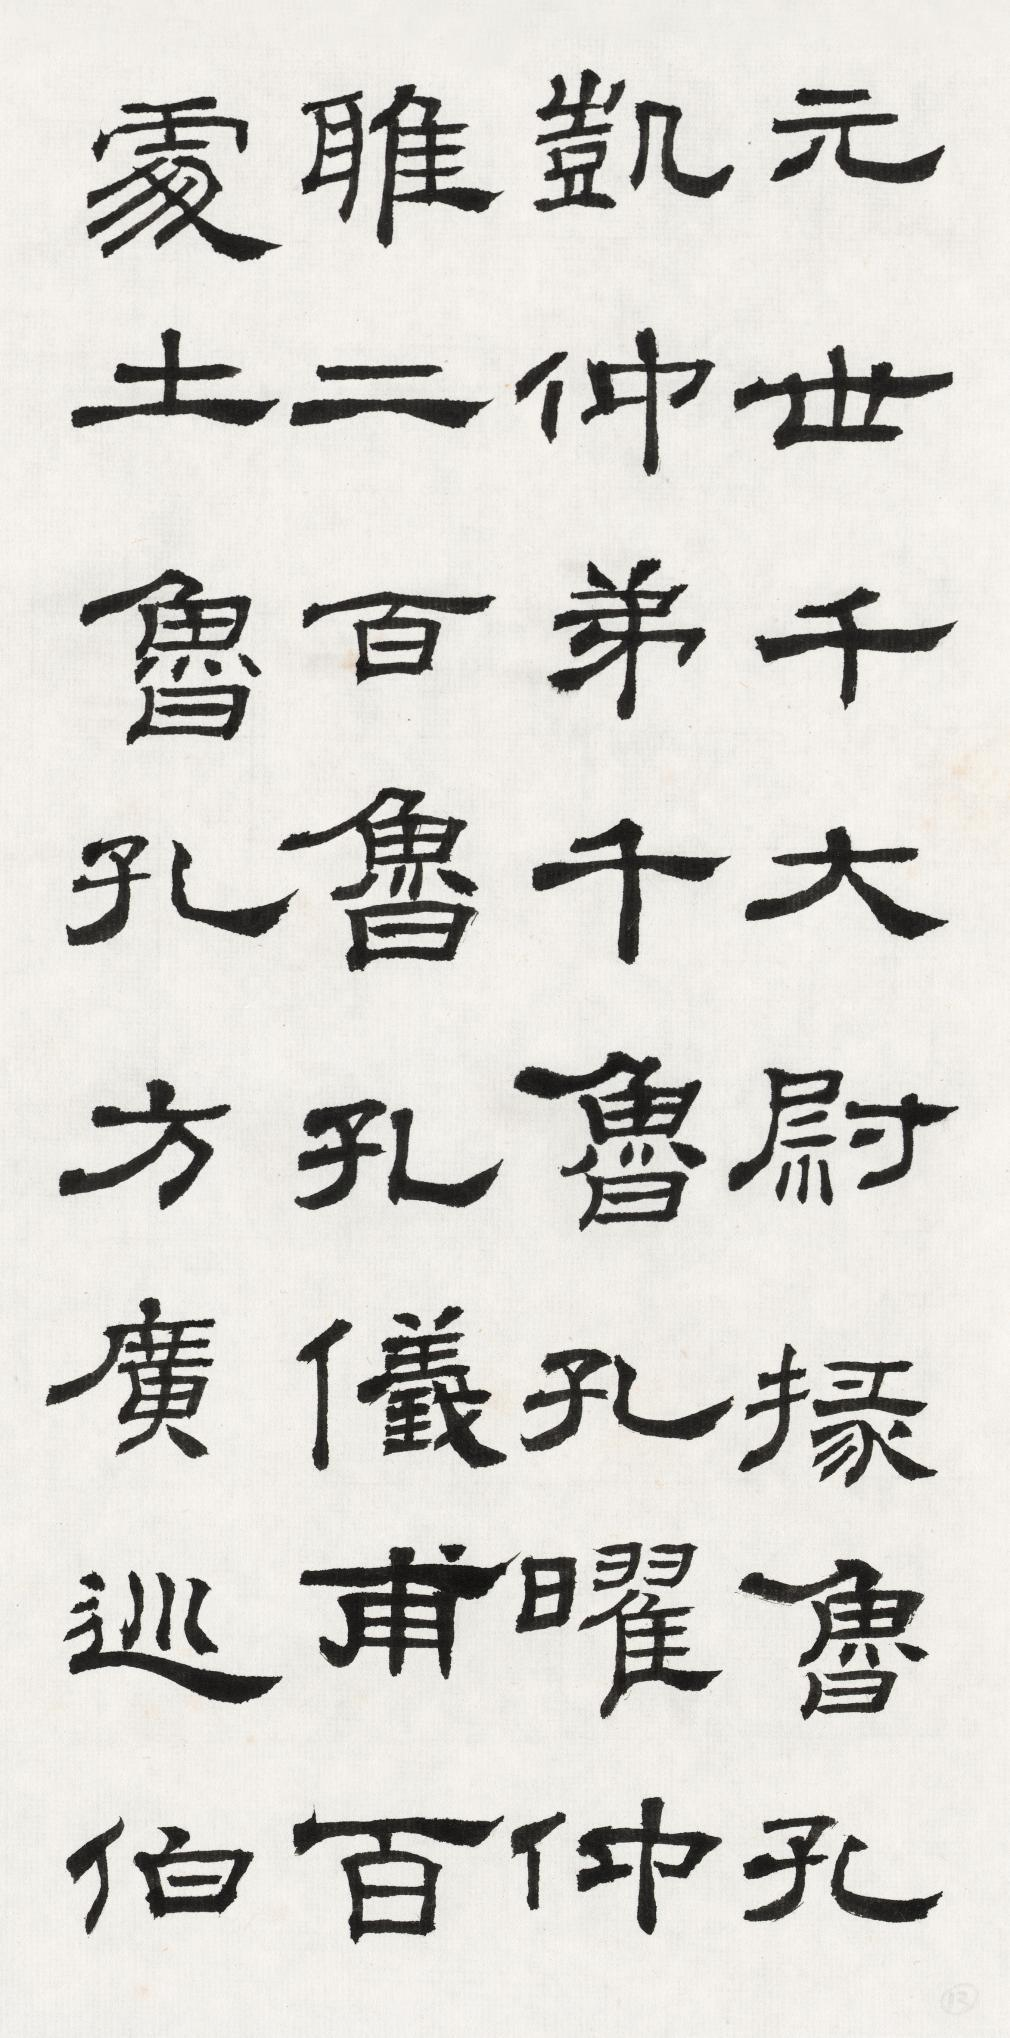 元世千大尉掾魯孔
凱仲弟千魯孔曜仲
雎二百魯孔儀甫百
處士魯孔方廣巡伯